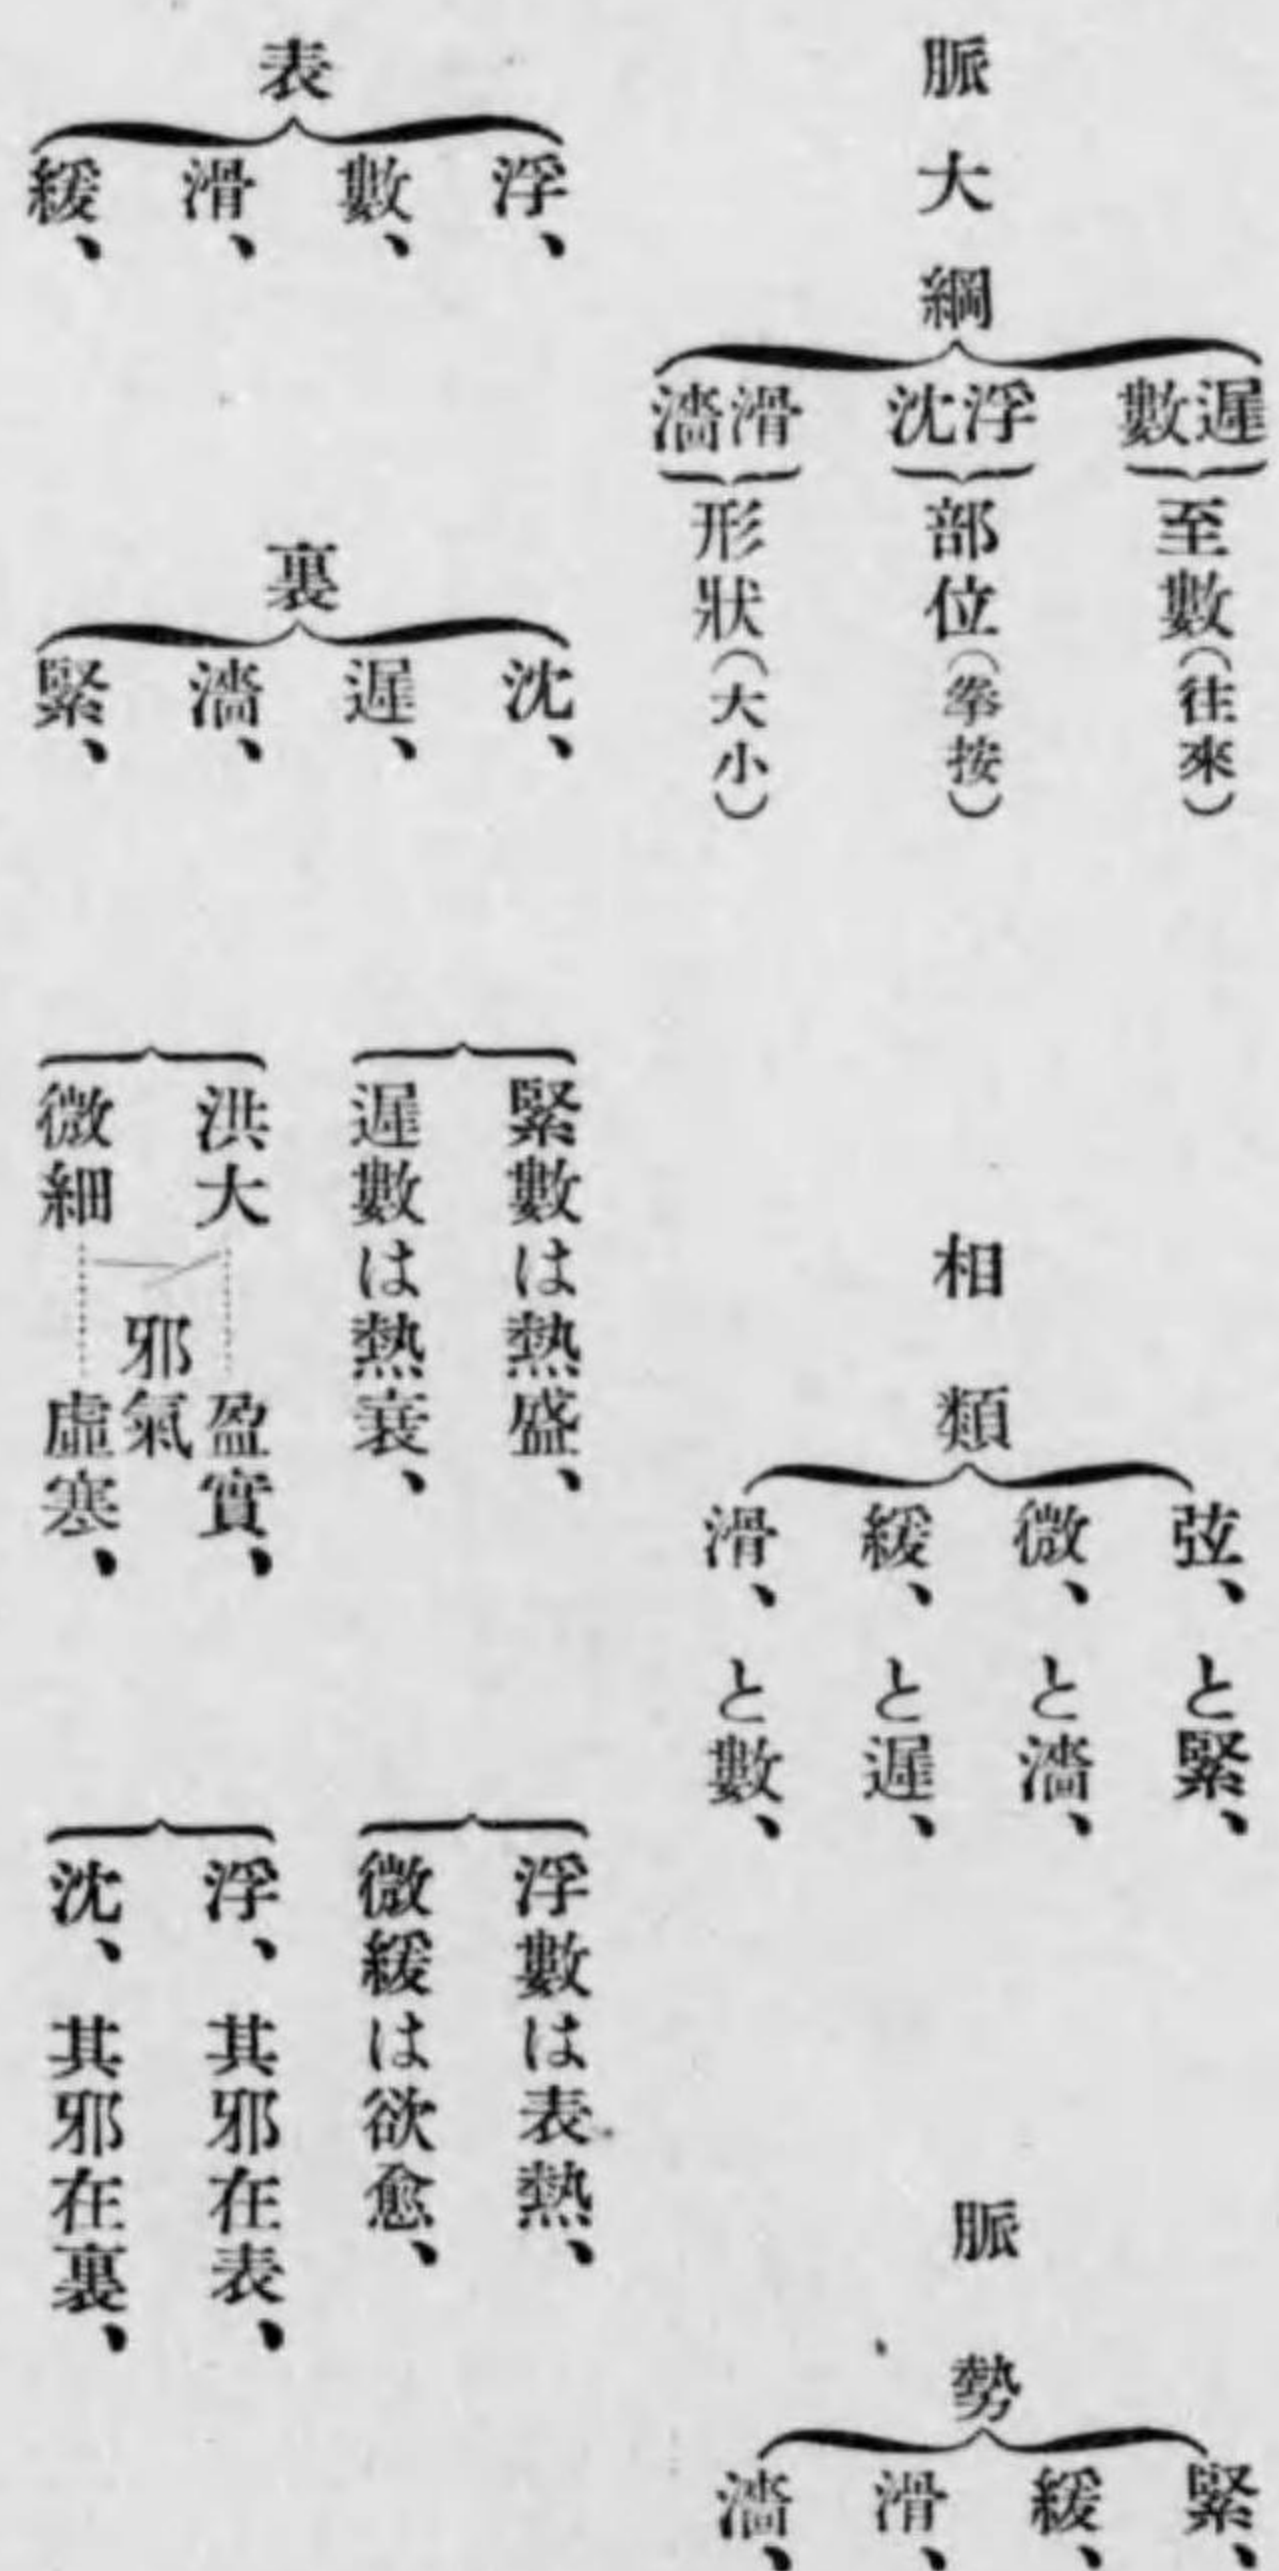 脈大綱
遲數
至數(往來)
浮沈
部位(擧按)
滑濇
形狀(大小)
相類
弦、と緊、
微、と濇、
緩、と遲、
滑、と數、
脈勢
緊、
緩、
滑、
濇、
表
浮、
數、
滑、
緩、
裏
沈、
遲、
濇、
緊、
緊數は熱盛、
遲數は熱衰、
洪大
盈實、
邪氣
微細
虛寒、
浮數は表熱、
微緩は欲愈、
浮、其邪在表、
沈、其邪在裏、